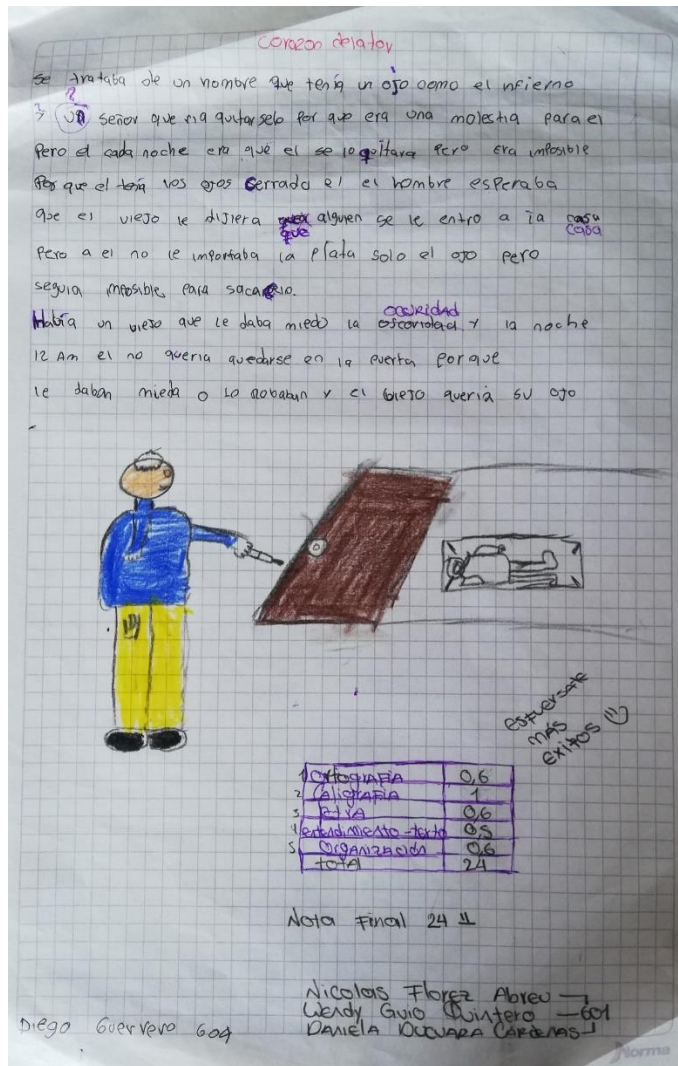 corazon delator
se trataba de un hombre que tenia un ojo como el nfierno
? ?
un señor que ria quitarselo por que era una molestia para el
Pero el cada noche era que el se lo quitara Pero era imposible
Por que el tenia los ojos Serrado el el hombre esperaba
que el viejo le dijiera que alguien se le entro a la casa
que casa
Pero a el no le importaba la plata solo el ojo pero
seguia imposible para sacarlo.
oscuridad
Habia un viejo que le daba miedo la oscoridad y la noche
12 Am el no queria quedarse en la puerta porque
le daban mieda o Lo robaban y el biejo queria su ojo
esfuersate
más
exitos
1 Ortografia 0,6
2 Caligrafia 1
3 0,6
4 entendimiento-texto 0,5
5 Organización 0,6
total 24
Nota Final 24
Nicolas Florez Abreu
Wendy Guio Quintero 601
Daniela Ducuara Cardenas
Diego Guerrero 604
Norma